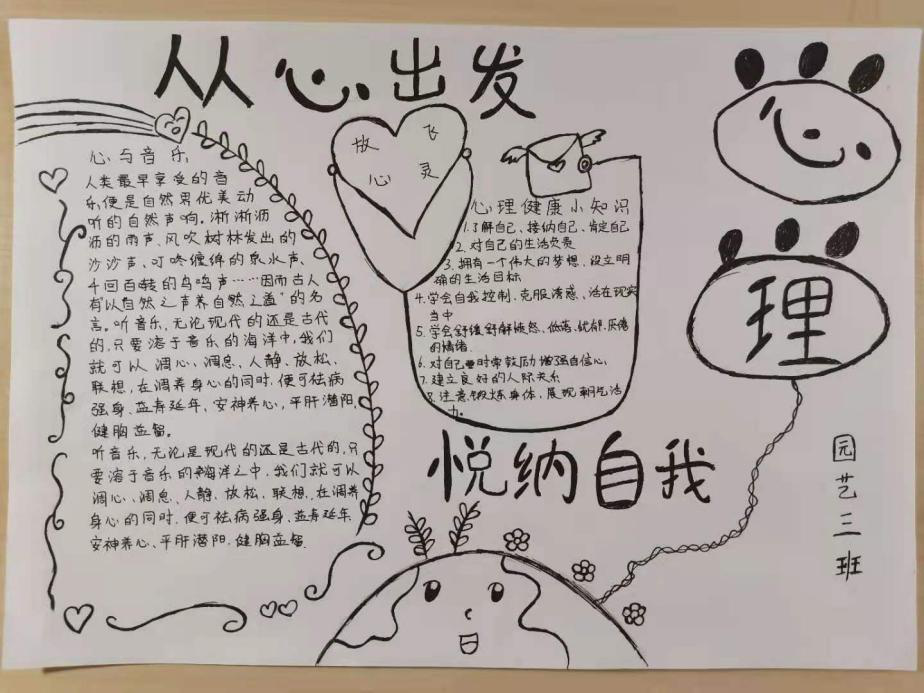 从心出发
心与音乐
人类最早享受的音
乐便是自然界优美动
听的自然声响。淅淅沥
沥的雨声、风吹树林发出的
沙沙声、叮咚缠绵的泉水声、
千回百转的鸟鸣声……因而古人
有“以自然之声养自然之
的名
言。听音乐,无论现代的还是古代
的,只要溶于音乐的海洋中,我们
就可以调心、调息、人静、放松、
联想,在调养身心的同时,便可祛病
强身、益寿延年,安神养心,平肝潜阳,
健胸益智。
听音乐,无论是现代的还是古代的,只
要溶于音乐的海洋之中,我们就可以
调心、调息、人静、放松、联想,在调养
身心的同时,便可祛病强身、益寿延年,
安神养心、平肝潜阳,健胸益智.
放飞
心灵
心理健康小知识
1.了解自己、接纳自己、肯定自己
2.对自己的生活负责
3.拥有一个伟大的梦想,设立明
确的生活目标
4.学会自我控制,克服诱惑、活在现实
当中
5.学会舒缓
低落、忧郁、厌倦
的情绪.
6.对自己
时常鼓励增强自信心
7.建立良好的人际关系
8.注意锻炼身体,展现朝气活
力。
悦纳自我
心
理
园艺三班